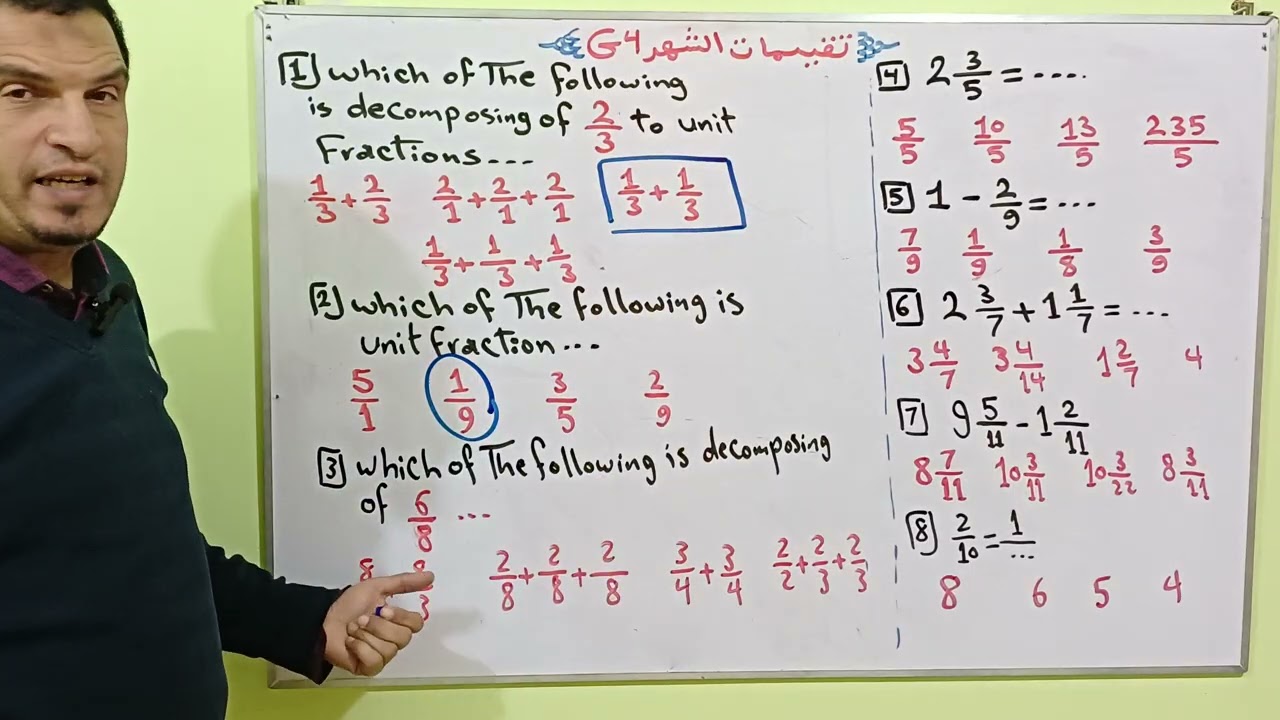 تقييمات الشهر G4
[1] which of The following
is decomposing of 2/3 to unit
Fractions...
1/3 + 2/3   2/1 + 2/1 + 2/1   1/3 + 1/3
1/3 + 1/3 + 1/3
[2] which of The following is
unit fraction...
5/1   1/9   3/5   2/9
[3] which of The following is decomposing
of 6/8 ...
2/8 + 2/8 + 2/8   3/4 + 3/4   2/2 + 2/3 + 2/3
[4] 2 3/5 = ....
5/5   10/5   13/5   235/5
[5] 1 - 2/9 = ...
7/9   1/9   1/8   3/9
[6] 2 3/7 + 1 1/7 = ...
3 4/7   3 4/14   1 2/7   4
[7] 9 5/11 - 1 2/11
8 7/11   10 3/11   10 3/22   8 3/11
[8] 2/10 = 1/...
8   6   5   4